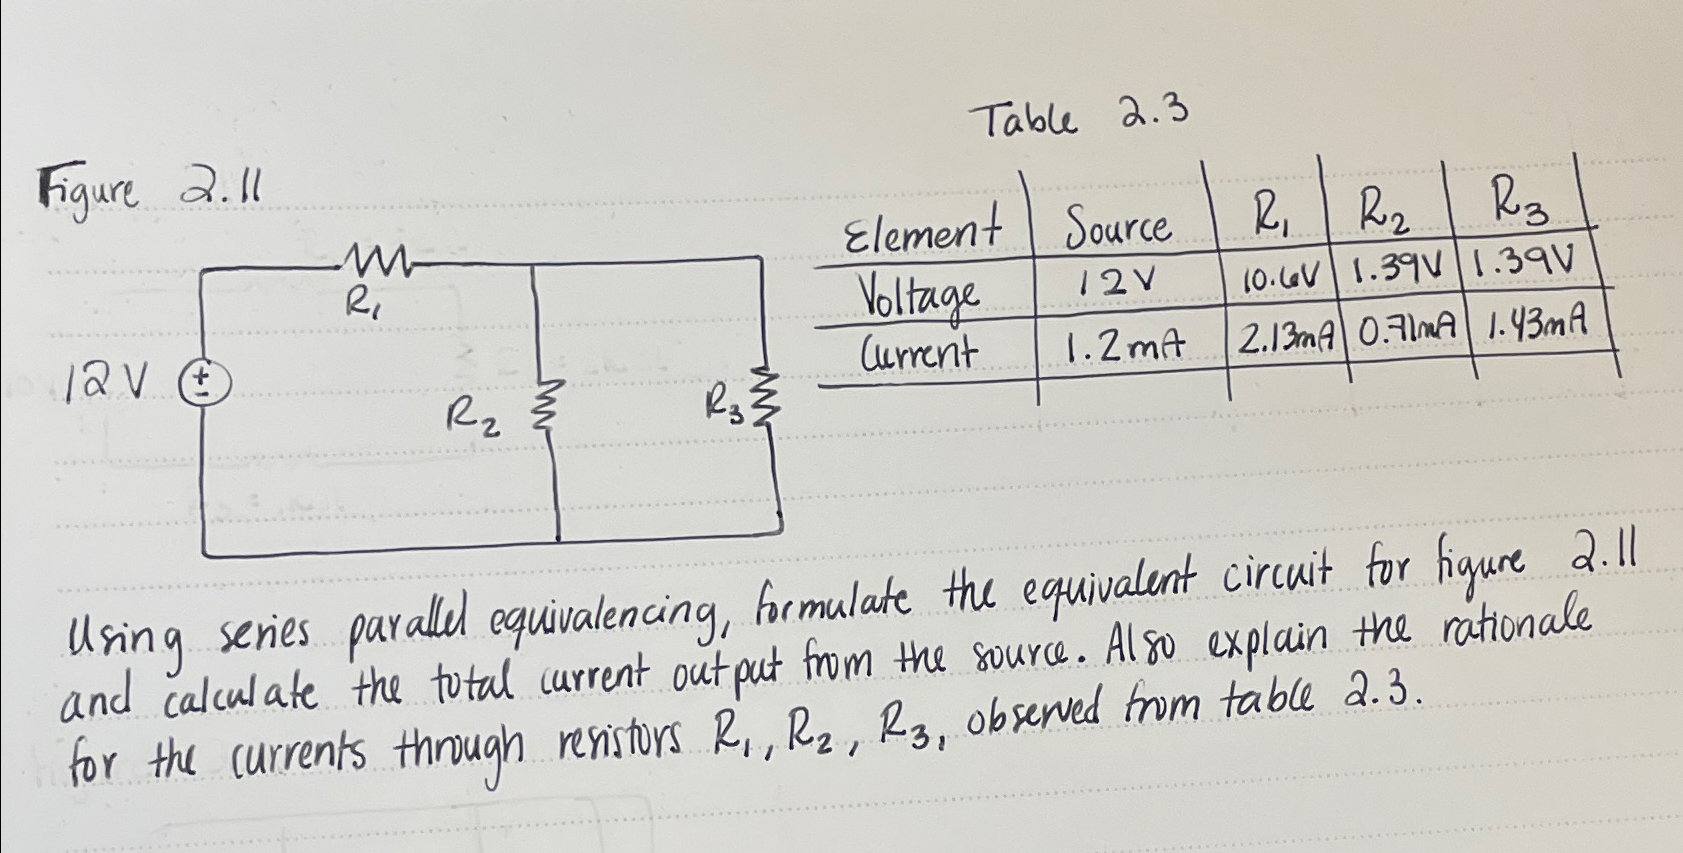 Table 2.3
Figure 2.11
Element Source R1 R2 R3
Voltage 12V 10.6V 1.39V 1.39V
Current 1.2mA 2.13mA 0.71mA 1.43mA
R1
12V
+
-
R2
R3
Using series parallel equivalencing, formulate the equivalent circuit for figure 2.11
and calculate the total current output from the source. Also explain the rationale
for the currents through resistors R1, R2, R3, observed from table 2.3.